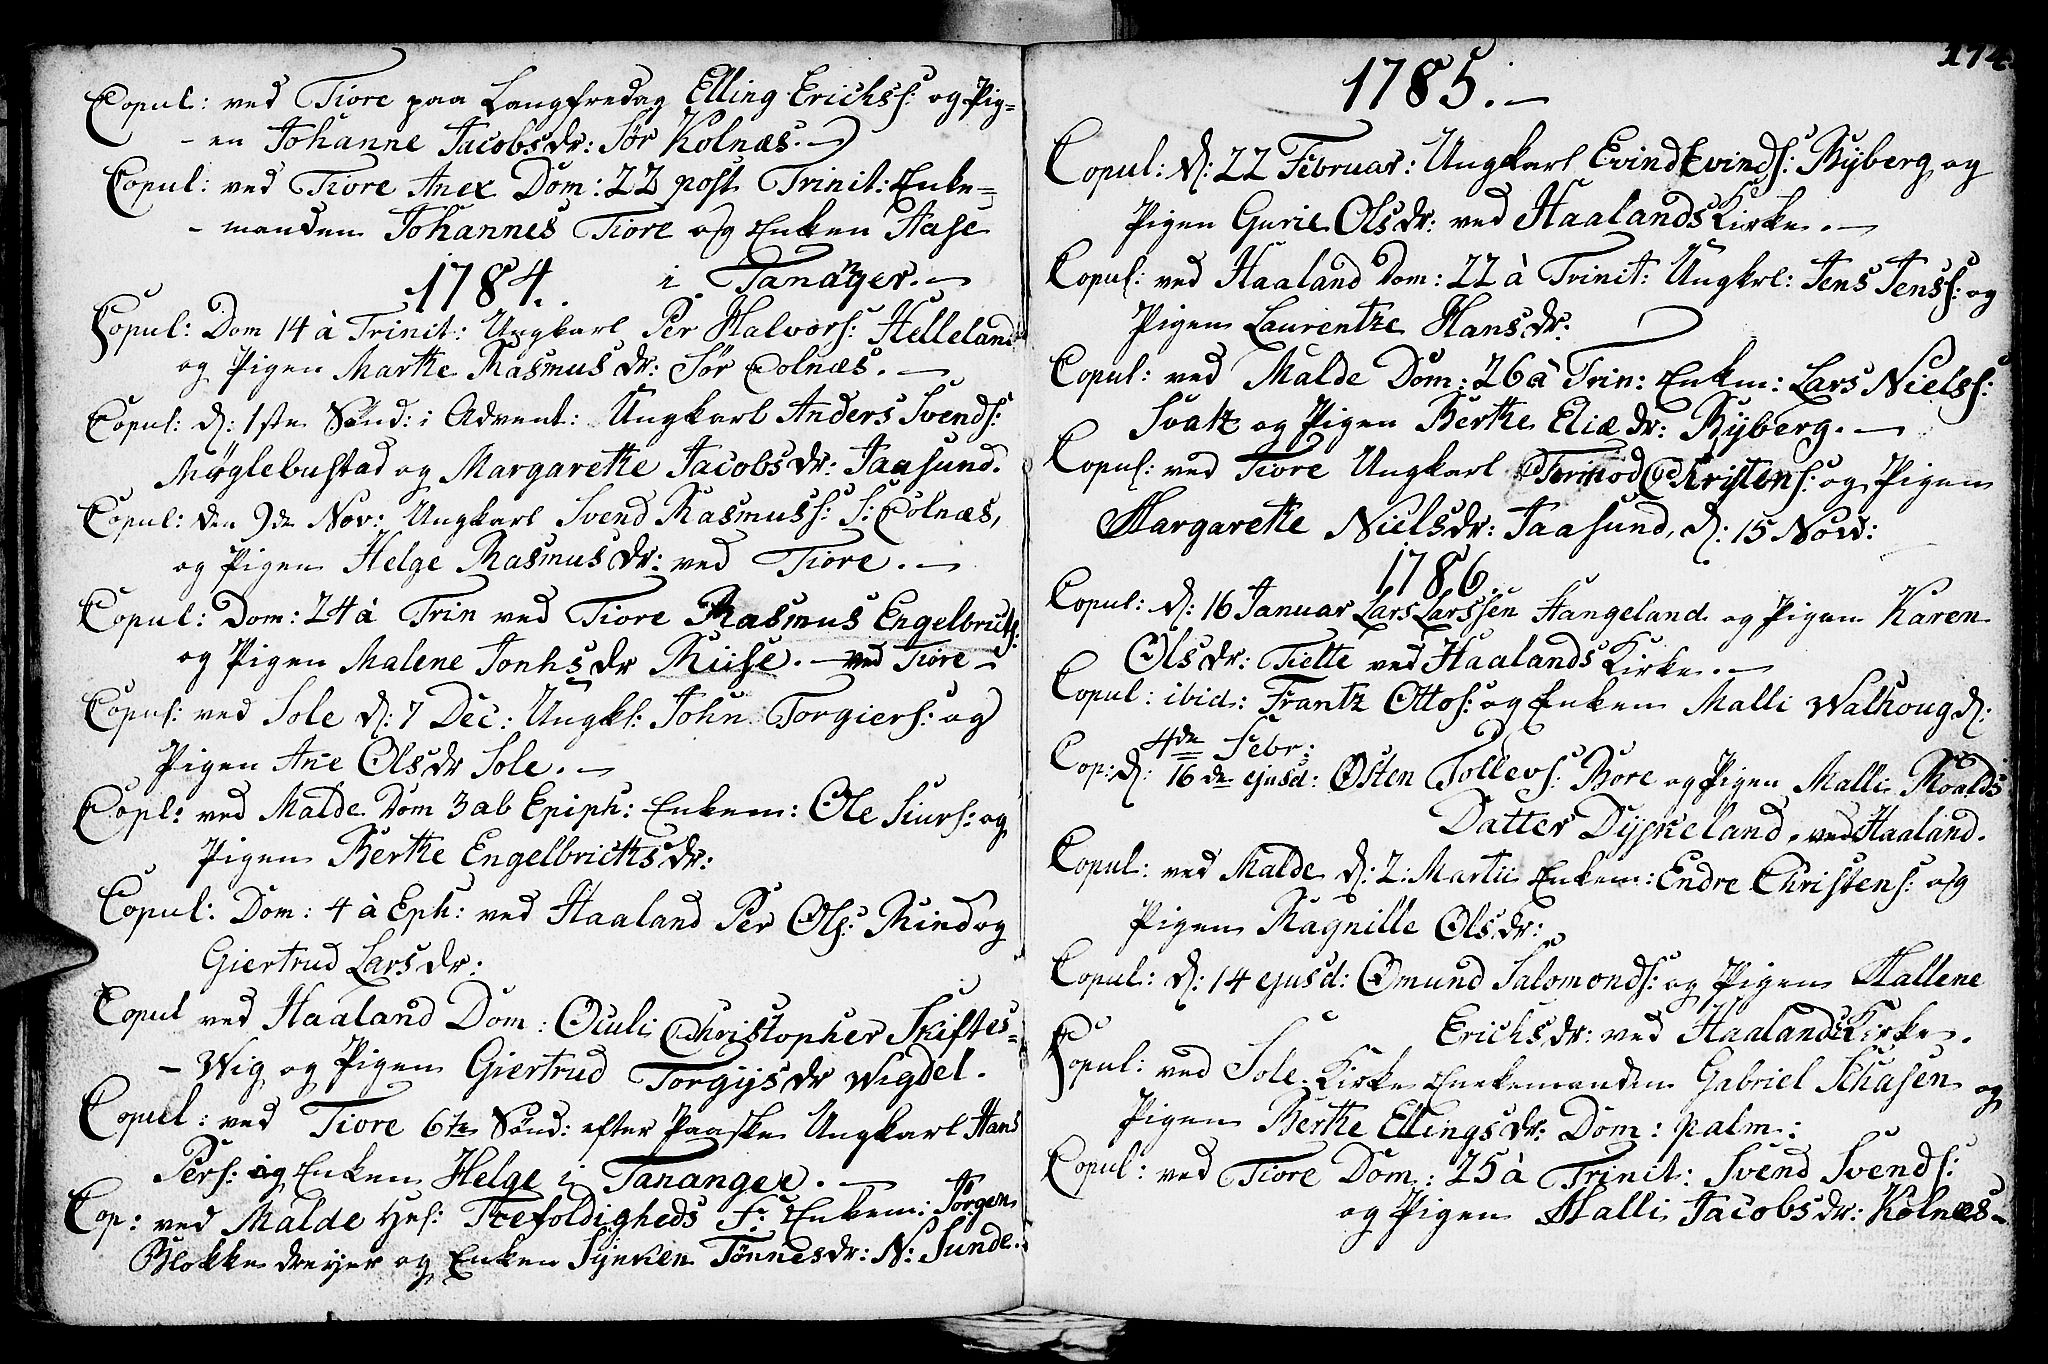 Copul: ved Tiore paa Langfredag Elling Erichs: og Pig=
- en Johanne Jacobsdr: Sør Kolnæs. -
Copul: ved Tiore Anex Dom: 22 post Trinit: Enke=
- manden Johannes Tiore og Enken Aase
1784. i Tananger. -
Copul: Dom 14 à Trinit: Ungkarl Per Halvors: Helleland
og Pigen Marthe Rasmusdr: Sør Colnæs. -
Copul: d: 1ste Sønd: i Advent: Ungkarl Anders Svends:
Møglebustad og Margarethe Jacobsdr: Jaasund.
Copul: den 9de Nov: Ungkarl Svend Rasmuss: S: Colnæs,
og Pigen Helge Rasmusdr: ved Tiore. -
Copul: Dom: 24 à Trin ved Tiore Rasmus Engelbricts:
og Pigen Malene Jonhsdr Riise. - ved Tiore -
Copul: ved Sole d: 7 Dec: Ungkl: John Torgiers: og
Pigen Ane Olsdr Sole. -
Copl: ved Malde Dom 3 ab Epiph: Enkem: Ole Siurs: og
Pigen Berthe Engelbricthsdr:
Copul: Dom: 4 à Eph: ved Haaland Per Ols: Rind og
Giertrud Larsdr:
Copul ved Haaland Dom: Oculi Christopher Skiftes=
- Wig og Pigen Giertrud Torgijsdr Wigdel.
Copul: ved Tiore 6te Sønd: efter Paaske Ungkarl Hans
Pers: og Enken Helge i Tananger. -
Cop: ved Malde Hel: Trefoldigheds F: Enkem: Jørgen
Blokkedreyer og Enken Synken Tønnesdr: N: Sunde.
174
1785. -
Copul: d: 22 Februar: Ungkarl Evind Evinds: Ryberg og
Pigen Gurie Olsdr: ved Haalands Kirke. -
Copul: ved Haaland Dom: 22 à Trinit: Ungkrl: Jens Jenss: og
Pigen Laurentze Hansdr:
Copul: ved Malde Dom: 26 à Trin: Enkm: Lars Niels:
Svatz og Pigen Berthe Eliædr: Ryberg. -
Copul: ved Tiore Ungkarl Tormod Christens: og Pigen
Margarethe Nielsdr: Jaasund, d: 15 Nov:
1786.
Copul: d: 16 Januar Lars Larssen Hangeland og Pigen Karen
Olsdr: Tielte ved Haalands Kirke. -
Copul: ibid: Frantz Ottos: og Enken Malli Walhoug d:
4de Febr:
Cop: d: 16de ejusd: Østen Tollevs: Bore og Pigen Malli Roalds
Datter Dyskeland, ved Haaland.
Copul: ved Malde d: 2: Martii Enkem: Endre Christens: og
Pigen Ragnille Olsdr:
Copul: d: 14 ejusd: Omund Salomonds: og Pigen Mallene
Erichsdr: ved Haalands Kirke.
Copul: ved Sole Kirke Enekemanden Gabriel Schasen og
Pigen Berthe Ellingsdr: Dom: palm:
Copul: ved Tiore Dom: 25 à Trinit: Svend Svends:
og Pigen Malli Jacobsdr: Kolnæs -